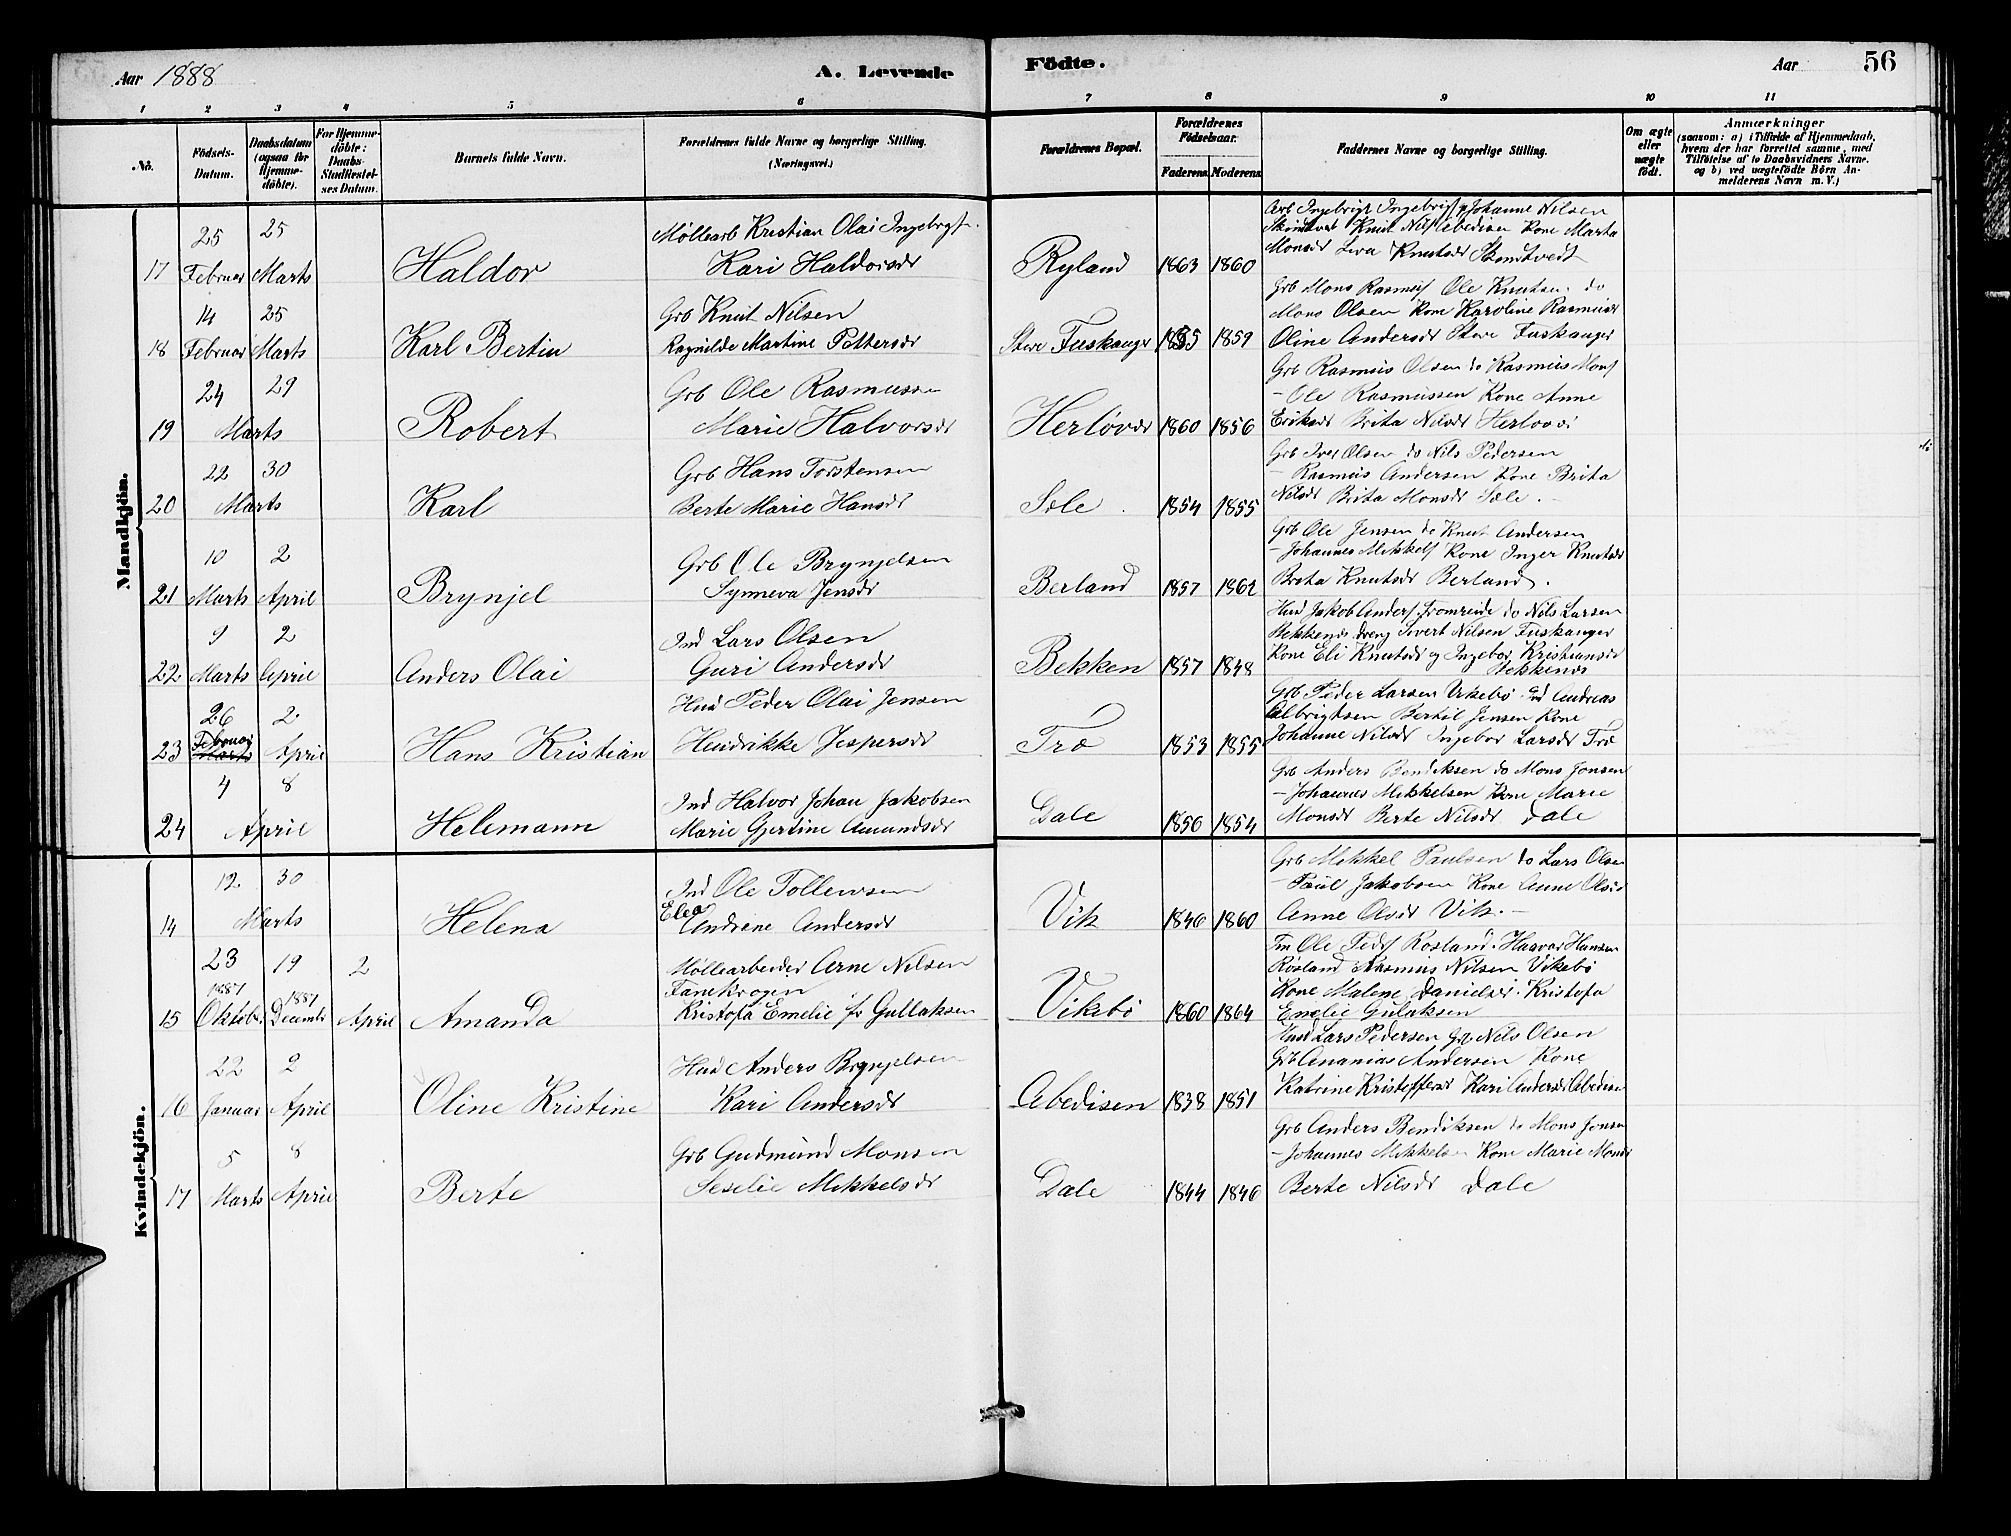 Aar 1888
A. Levende
Födte.
Aar
56
1 2 3 4 5 6 7 8 9 10 11
No.
Födsels-
Datum.
Daabsdatum
(ogsaa for
Hjemme-
döbte).
For Hjemme-
döbte:
Daabs-
Stadfæstel-
ses Datum.
Barnets fulde Navn.
Forældrenes fulde Navne og borgerlige Stilling.
(Næringsvei.)
Forældrenes Bopæl.
Forældrenes
Födselsaar.
Faderens.
Moderens.
Faddernes Navne og borgerlige Stilling.
Om ægte
eller
uægte
födt.
Anmærkninger
(saasom: a) i Tilfælde af Hjemmedaab,
hvem der har forrettet samme, med
Tilföielse af to Daabsvidners Navne.
og b) ved uægtefödte Börn An-
melderens Navn m. V.)
Mandkjön.
25 25
17 Februar Marts
Haldor
Møllearb Kristian Olai Ingebrgts.
Kari Haldorsdr
Ryland 1863 1860
Arb Ingebrigt Ingebrigts Johanne Nilsen
Knut Nils Abedisen Kone Marta
Monsdr Knutsdr Skindtvedt
14 25
18 Februar Marts
Karl Bertin
Grb Knut Nilsen
Ragnilde Martine Pettersdr
Store Fuskanger 1855 1859
Grb Mons Rasmus Ole Knutsen do
Mons Olsen Kone Karoline Rasmusdr
Oline Andersdr Store Fuskanger
24 29
19 Marts
Robert
Grb Ole Rasmussen
Marie Halvorsdr
Herlövær 1860 1856
Grb Rasmus Olsen do Rasmus Mons
- Ole Rasmussen Kone Anne
Eriksdr Brita Nilsdr
22 30
20 Marts
Karl
Grb Hans Torstensen
Berte Marie Hansdr
Sæle 1854 1855
Grb Iver Olsen do Nils Pedersen
- Rasmus Andersen Kone Brita
Nilsdr Brita Monsdr Sæle.
10 2
21 Marts April
Brynjel
Grb Ole Brynjelsen
Synneva Jensdr
Berland 1857 1862
Grb Ole Jensen do Knut Andersen
- Johannes Mikkels Kone Inger Knutsdr
Brita Knutsdr Berland.
9 2
22 Marts April
Anders Olai
Ind Lars Olsen
Guri Andersdr
Bekken 1857 1848
Hud Jakob Anders. do Nils Larsen
dreng Sivert Nilsen Fuskanger
Kone Eli Knutsdr og Ingebor Kristiansdr
26 2
23 Februar Marts April
Hans Kristian
Hud Peder Olai Jensen
Hendrikke Jespersdr
Træ 1853 1855
Grb Peder Larsen Vikebø Ind Andreas
Albrigtsen Bertil Jensen Kone
Johanne Nilsdr Ingebor Larsdr Træ
4 8
24 April
Helemann
Ind Halvor Johan Jakobsen
Marie Gjertine Amundsdr
Dale 1856 1854
Grb Anders Bendiksen do Mons Jonsen
- Johannes Mikkelsen Kone Marie
Monsdr Berte Nilsdr Dale
Kvindekjön.
12 30
14 Marts
Helena
Ind Ole Tollevsen
Elea
Andrine Andersdr
Vik 1846 1860
Grb Mikkel Paulsen do Lars Olsen
- Paul Jakobsen Kone Anne Olsdr
Anne Olsdr Vik. -
23 19 2
1887 1887
15 Oktober December April
Amanda
Møllearbeider Arne Nilsen
Fanekrogen
Kristofa Emelie f. Gullaksen
Vikebö 1860 1864
Ole Peds Rosland. Haavar Hansen
Røsland Rasmus Nilsen Vikebö
Kone Malene Danielsdr. Kristofa
Emelie Gulaksen
22 2
16 Januar April
Oline Kristine
Hud Anders Brynjelsen
Kari Andersdr
Abedisen 1838 1851
Hud Lars Pedersen Grb Nils Olsen
Grb Ananias Andersen Kone
Katrine Kristoffersdr Kari Andersdr Abedisen
5 8
17 Marts April
Berte
Grb Gudmund Monsen
Seselie Mikkelsdr
Dale 1844 1846
Grb Anders Bendiksen do Mons Jonsen
- Johannes Mikkelsen Kone Marie Monsdr
Berte Nilsdr Dale